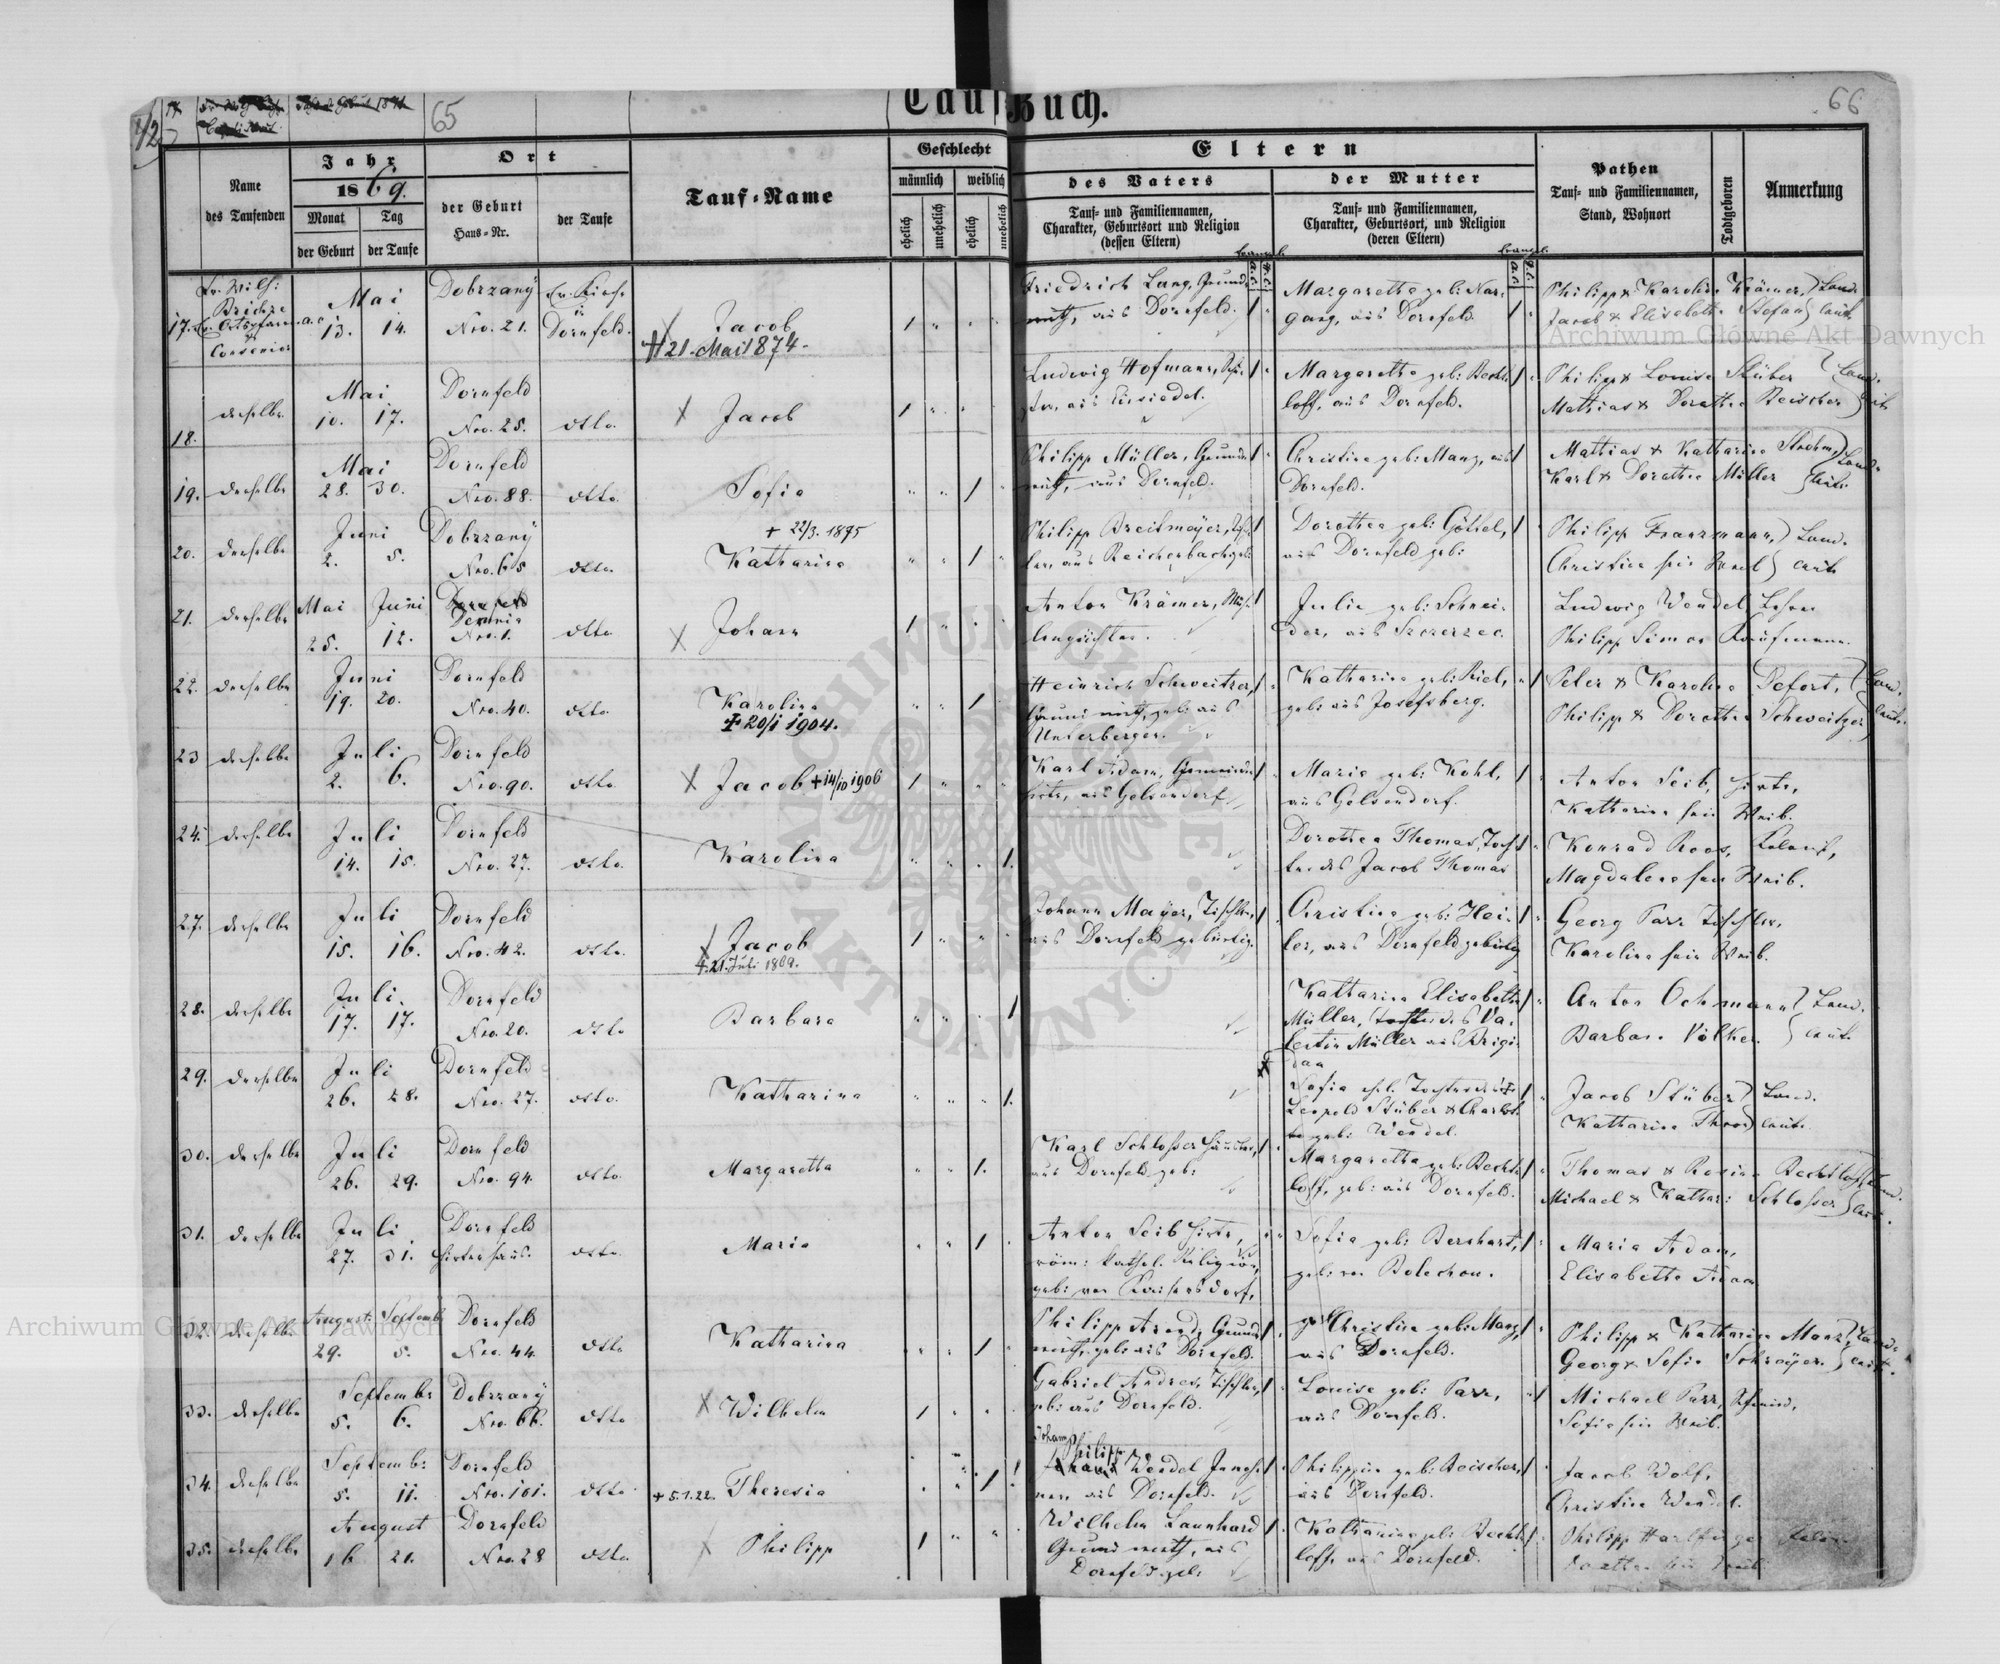 65
Tauf-Buch.
66
Name
des Taufenden
Jahr
1869.
Monat
der Geburt
Tag
der Taufe
Ort
der Geburt
Haus-Nr.
der Taufe
Tauf-Name
Geschlecht
männlich
weiblich
ehelich
unehelich
ehelich
unehelich
Eltern
des Vaters
Tauf- und Familiennamen,
Charakter, Geburtsort und Religion
(dessen Eltern)
der Mutter
Tauf- und Familiennamen,
Charakter, Geburtsort, und Religion
(deren Eltern)
Pathen
Tauf- und Familiennamen,
Stand, Wohnort
Todtgeboren
Anmerkung
17.
Mai
13. 14.
Dobrzany
Nro. 21.
Dornfeld.
Jacob
21. Mai 1874.
Friedrich Lang, Grund-
wirth, aus Dornfeld.
Margaretha geb: Nar-
gang, aus Dornfeld.
Philipp & Karoline Krämer, Land-
Jacob & Elisabetha Stefan leute
18.
derselbe
Mai
10. 17.
Dornfeld
Nro. 25.
dtto.
Jacob
Ludwig Hofmann,
aus Einsiedel.
Margaretha geb: Becht-
loff, aus Dornfeld.
Philipp & Louise Stüber
Mathias & Dorothea Reischer
19.
derselbe
Mai
28. 30.
Dornfeld
Nro. 88.
dtto.
Sofia
Philipp Müller, Grund-
wirth, aus Dornfeld.
Christine geb: Manz, aus
Dornfeld.
Mathias & Katharina
Karl & Dorothea Müller
20.
derselbe
Juni
2. 5.
Dobrzany
Nro. 65
dtto.
+ 22/3. 1895
Katharina
Philipp Breitmayer,
aus Reichenbach geb:
Dorothea geb: Göthel,
aus Dornfeld geb:
Philipp Franzmann, Land-
Christine sein Weib leute
21.
derselbe
Mai Juni
25. 12.
Dornfeld
Demnia
Nro. 1.
dtto.
Johann
Anton Krämer,
Julie geb: Schnei-
der, aus Szczerzec.
Ludwig Wendel
Philipp Simon Kaufmann.
22.
derselbe
Juni
19. 20.
Dornfeld
Nro. 40.
dtto.
Karolina
+ 20/1 1904.
Heinrich Schweitzer,
Grundwirth, geb: aus
Unterbergen.
Katharina geb: Riel,
geb: aus Josefsberg.
Peter & Karolina Defort,
Philipp & Dorothea Schweitzer
23
derselbe
Juli
2. 6.
Dornfeld
Nro. 90.
dtto.
Jacob + 14/10 1906
Karl Adam, Gemeinde-
hirte, aus Gelsendorf
Maria geb: Kohl,
aus Gelsendorf.
Anton Seib, Hirte,
Katharina sein Weib.
24.
derselbe
Juli
14. 15.
Dornfeld
Nro. 27.
dtto.
Karolina
Dorothea Thomas, Toch-
ter des Jacob Thomas
Konrad Roos,
Magdalena sein Weib.
27.
derselbe
Juli
15. 16.
Dornfeld
Nro. 42.
dtto.
Jacob
+. 21. Juli 1869.
Johann Mayer, Tischler,
aus Dornfeld gebürtig.
Christine geb: Hei-
ler, aus Dornfeld gebürtig
Georg Parr Tischler,
Karolina sein Weib.
28.
derselbe
Juli.
17. 17.
Dornfeld
Nro. 20.
dtto
Barbara
Katharina Elisabetha
Müller, Tochter des Va-
lentin Müller aus Brigi-
dau
Anton Ochmann Land-
Barbara Völker leute
29.
derselbe
Juli
26. 28.
Dornfeld
Nro. 27.
dtto.
Katharina
Sofia ehl. Tochter des
Leopold Stüber & Charlot-
te geb: Wendel.
Jacob Stüber Land-
Katharina leute
30.
derselbe
Juli
26. 29.
Dornfeld
Nro. 94.
dtto.
Margaretha
Karl Schlosser
aus Dornfeld geb:
Margaretha geb: Becht-
loff, geb: aus Dornfeld.
Thomas & Rosina Bechtloff
Michael & Kathar: Schlosser
31.
derselbe
Juli
27. 31.
Dornfeld
Hirtenhaus.
dtto.
Maria
Anton Seib Hirte,
röm: kathol. Religion,
geb: von Kaisersdorf,
Sofia geb: Bernhart,
geb: von Bolechow.
Maria Adam,
Elisabetha Adam
32.
derselbe
August Septemb:
29. 5.
Dornfeld
Nro. 44.
dtto
Katharina
Philipp Arend, Grund-
wirth, geb: aus Dornfeld.
Christine geb: Manz,
aus Dornfeld.
Philipp & Katharina Manz
Georg & Sofia Schrayer
33.
derselbe
Septembr
5. 6.
Dobrzany
Nro. 66.
dtto
Wilhelm
Gabriel Andres, Tischler,
geb: aus Dornfeld.
Louise geb: Parr,
aus Dornfeld.
Michael Parr, Schmied,
Sofia sein Weib.
34.
derselbe
Septemb:
5. 11.
Dornfeld
Nro. 101.
dtto.
+ 5.1.22. Theresia
Johann
Philipp
Wendel
aus Dornfeld.
Philippine geb: Reischer,
aus Dornfeld.
Jacob Wolf,
Christine Wendel.
35.
derselbe
August
16 21.
Dornfeld
Nro. 28
dtto.
Philipp
Wilhelm Launhard
Grundwirth, aus
Dornfeld geb:
Katharina geb: Becht-
loff, aus Dornfeld.
Philipp
Archiwum Główne Akt Dawnych
Archiwum Główne Akt Dawnych
ARCHIWUM GŁÓWNE
AKT DAWNYCH